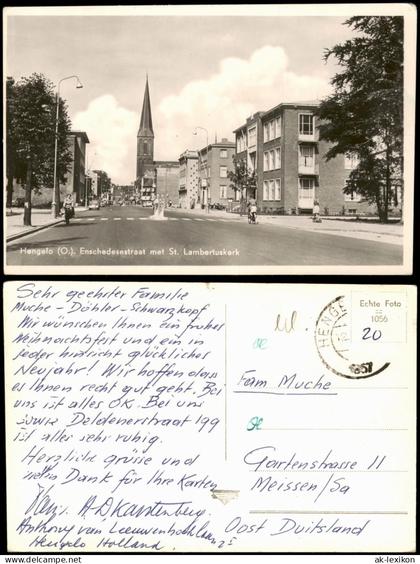 Hengelo (O.), Enschedesestraat met St. Lambertuskerk
Sehr geehrter Familie
Muche - Döhler - Schwarzkopf
Wir wünschen Ihnen ein frohes
Weihnachtsfest und ein in
jeder hinsicht glückliches
Neujahr! Wir hoffen dass
es Ihnen recht gut geht. Bei
uns ist alles OK. Bei uns
sowie Deldenerstraat 199
ist alles sehr ruhig.
Herzliche grüsse und
vielen Dank für Ihre Karten
Anthony van Leeuwenhoeklaan 25
Hengelo Holland.
HENG
1957
Echte Foto
1056
20
Fam Muche
Gartenstrasse 11
Meissen/Sa
Oost Duitsland
ak-lexikon.com